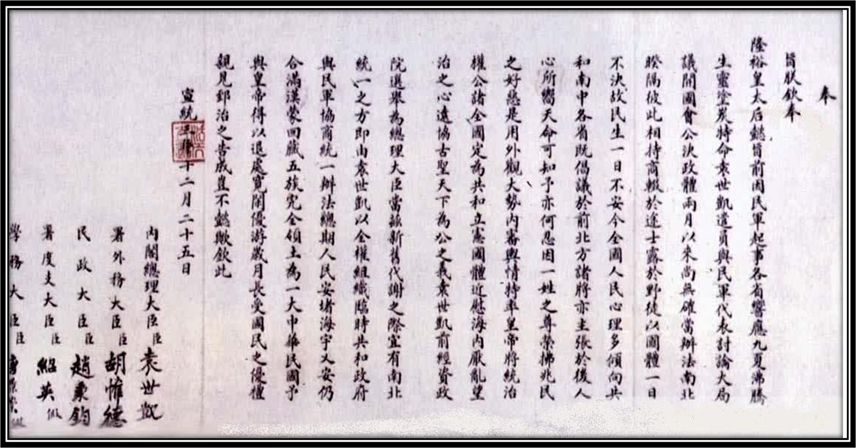 奉
旨朕欽奉
隆裕皇太后懿旨前因民軍起事各省響應九夏沸騰
生靈塗炭特命袁世凱遣員與民軍代表討論大局
議開國會公決政體兩月以來尚無確當辦法南北
暌隔彼此相持商輟於途士露於野徒以國體一日
不決故民生一日不安今全國人民心理多傾向共
和南中各省既倡議於前北方諸將亦主張於後人
心所嚮天命可知予亦何忍因一姓之尊榮拂兆民
之好惡是用外觀大勢內審輿情特率皇帝將統治
權公諸全國定為共和立憲國體近慰海內厭亂望
治之心遠協古聖天下為公之義袁世凱前經資政
院選舉為總理大臣當茲新舊代謝之際宜有南北
統一之方即由袁世凱以全權組織臨時共和政府
與民軍協商統一辦法總期人民安堵海宇乂安仍
合滿漢蒙回藏五族完全領土為一大中華民國予
與皇帝得以退處寬閒優游歲月長受國民之優禮
親見郅治之告成豈不懿歟欽此
宣統三年十二月二十五日
內閣總理大臣臣袁世凱
署外務大臣臣胡惟德
民政大臣臣趙秉鈞
署度支大臣臣紹英假
學務大臣臣